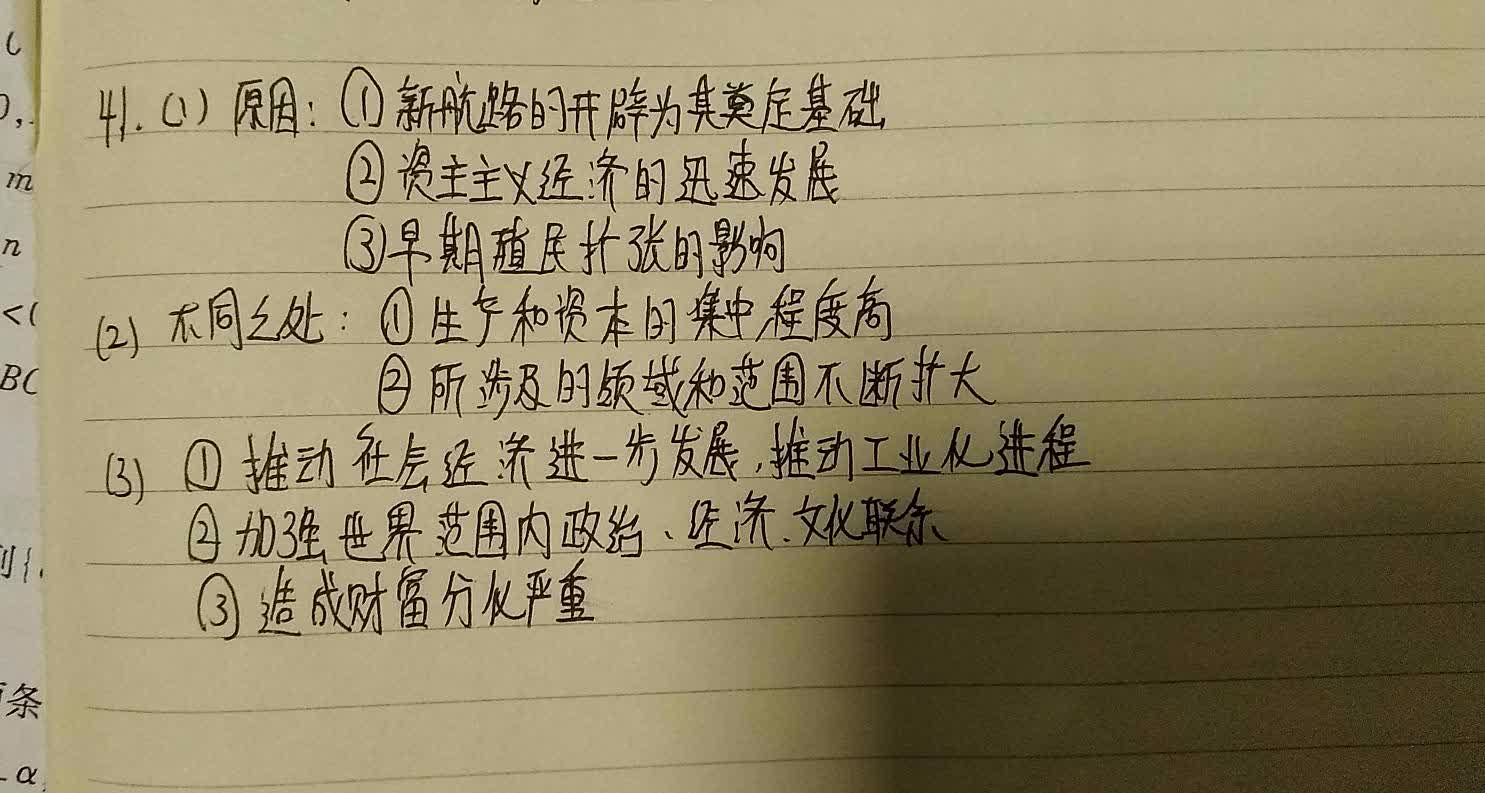 41. (1) 原因: ① 新航路的开辟为其奠定基础
② 资主主义经济的迅速发展
③ 早期殖民扩张的影响
(2) 不同之处: ① 生产和资本的集中程度高
② 所涉及的领域和范围不断扩大
(3) ① 推动社会经济进一步发展,推动工业化进程
② 加强世界范围内政治、经济、文化联系
③ 造成财富分化严重
m
n
<(
BC
条
α